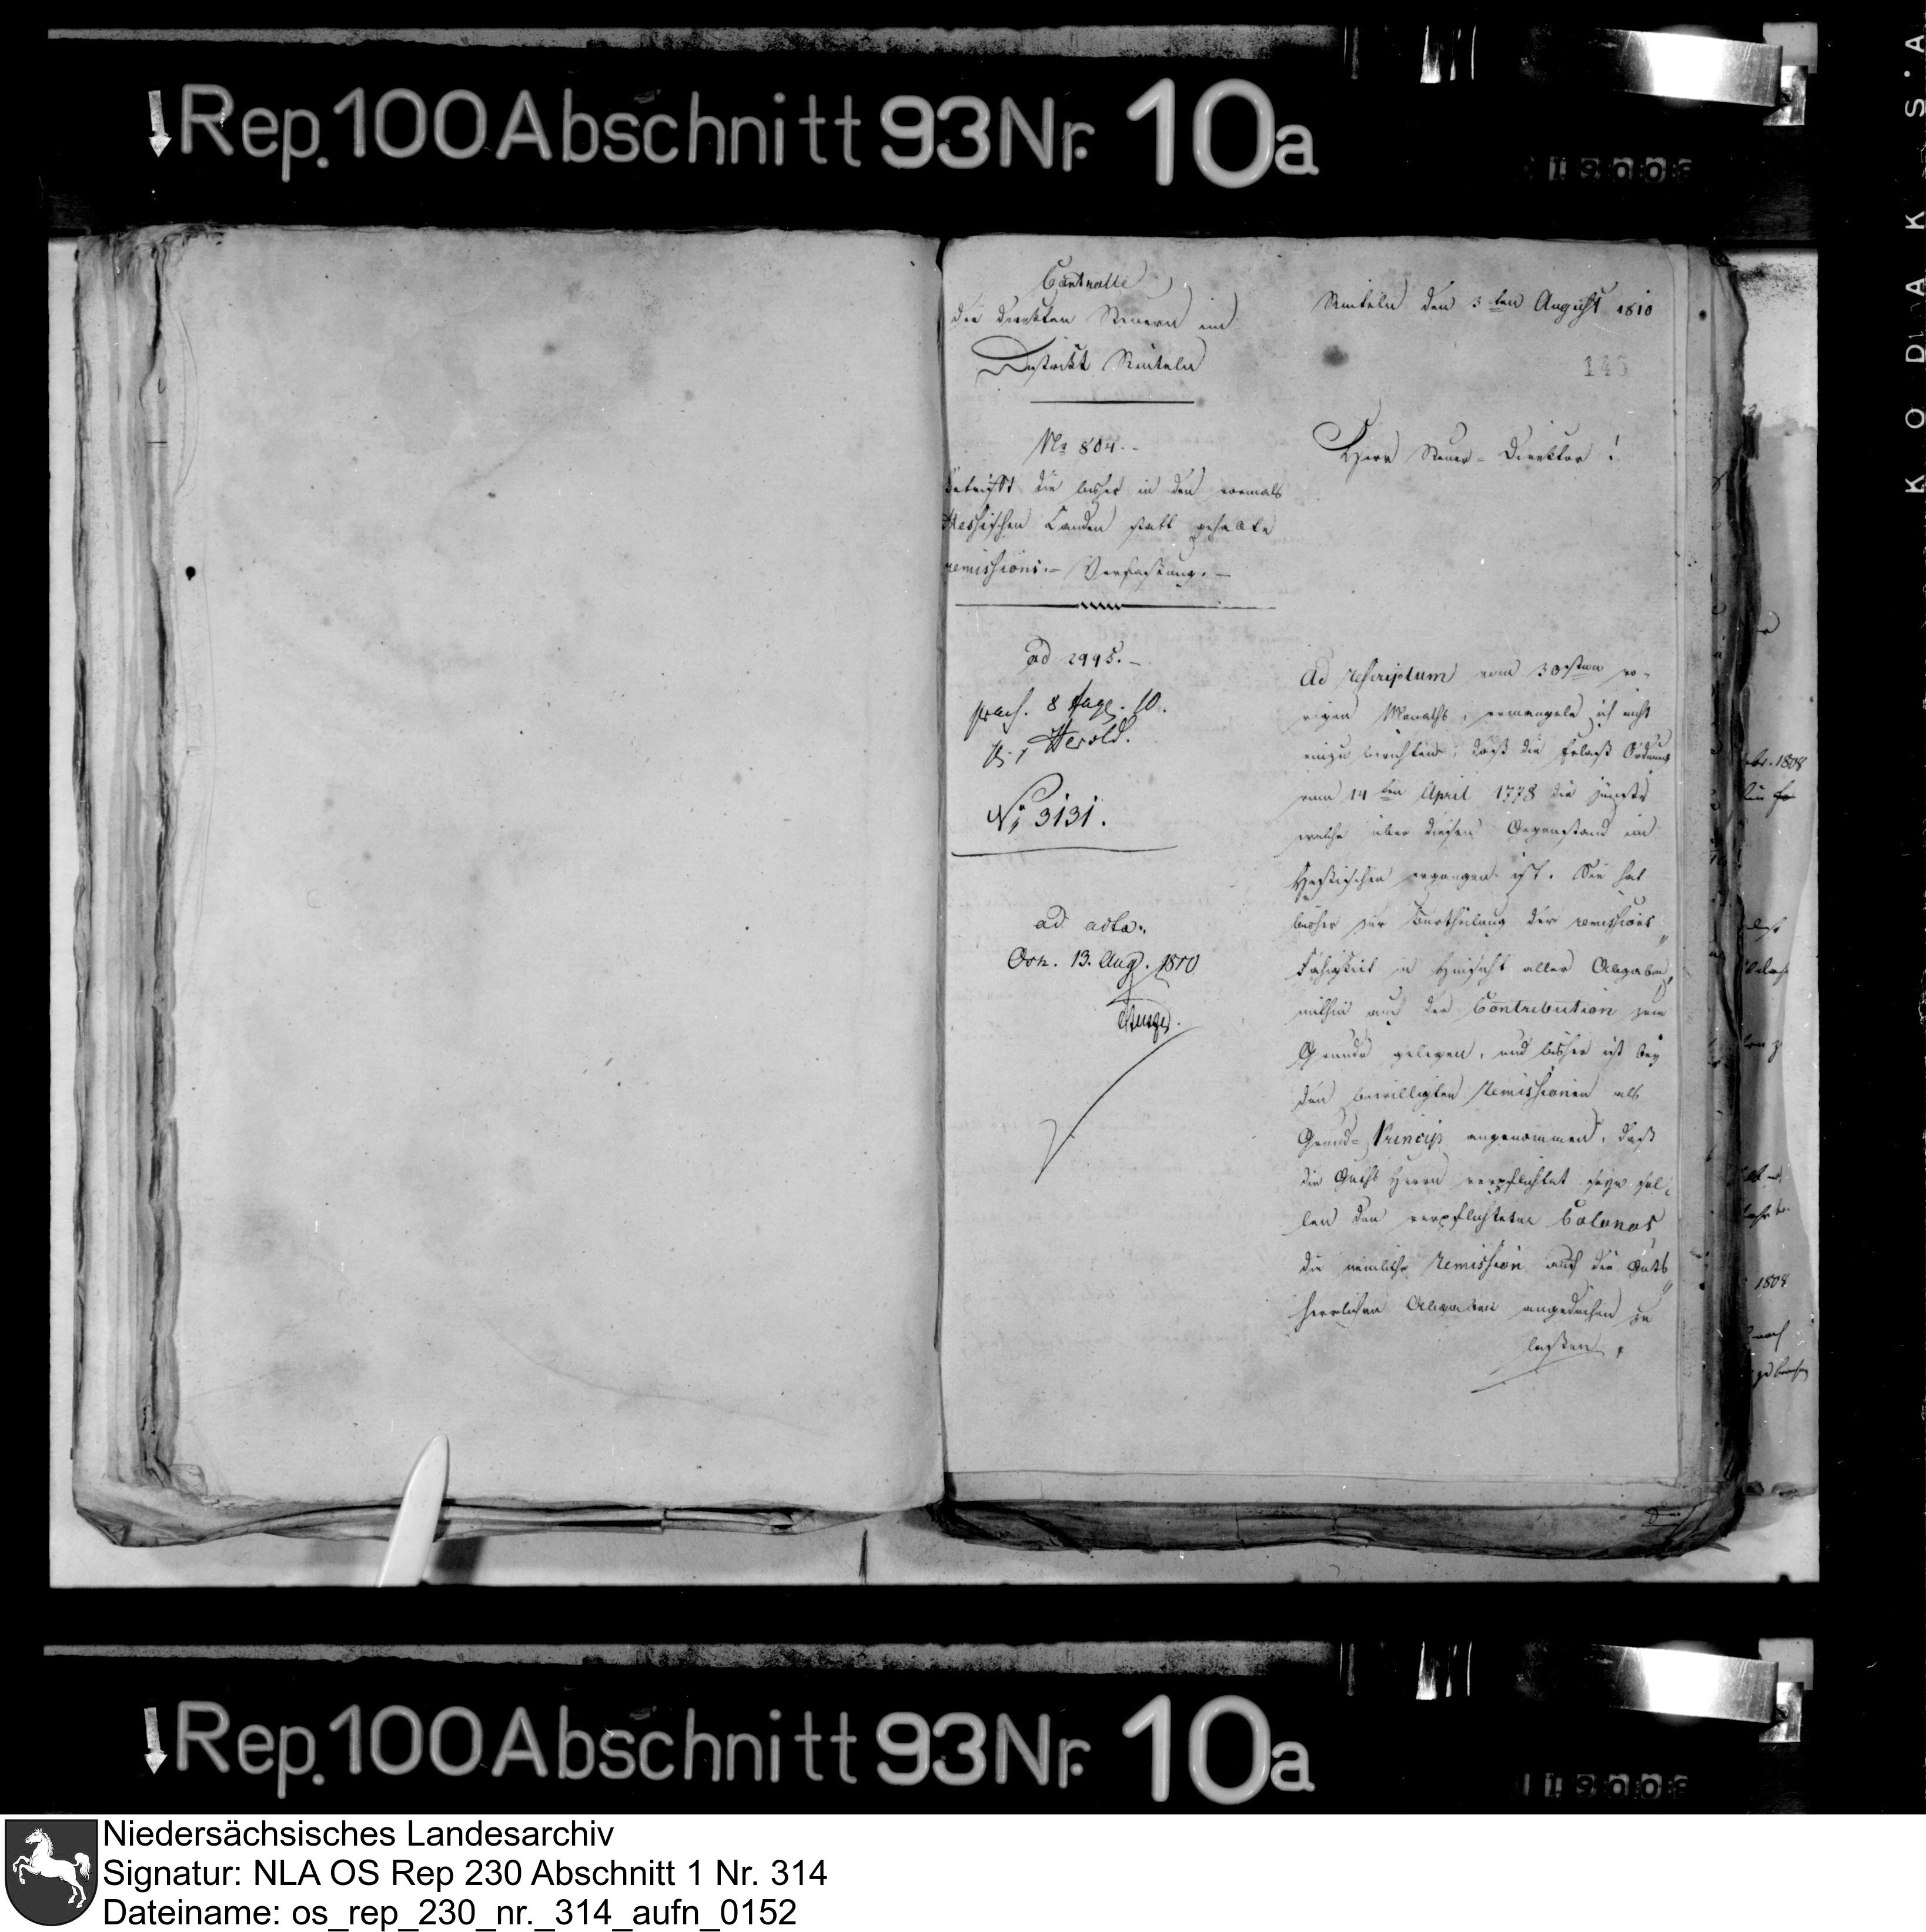 Rep. 100 Abschnitt 93 Nr. 10a
KODAK S.A
Controlle
der direkten Steuern im
Distrikt Rinteln
Rinteln den 3ten August 1810
Herr Steuer-Direktor!
No 804.-
Betrifft die bisher in den vormals
Hessischen Landen statt gehabte
remissions.- Verfassung.-
ad 2995.-
praes. 8 Aug. 10.
Herold.
No 3131.
ad acta.
Osn. 13. Aug. 1810
Ad rescriptum vom 30sten vo-
rigen Monaths, ermangele ich nicht
einzu berichten, daß die Erlaß Ordnung
vom 14ten April 1778 die jüngste
welche über diesen Gegenstand im
Hessischen ergangen ist. Sie hat
bisher zur Beurtheilung der remissions
Fähigkeit in Hinsicht aller Abgaben,
mithin auch der Contribution zum
Grunde gelegen, und bisher ist bey
den bewilligten remissionen als
Grund-Princip angenommen, daß
die Guths Herrn verpflichtet seyn sol-
len den verpflichteten Colonos
die nämliche remission auf die Guts
herrlichen Abgaben angedeihen zu
laßen,
Rep. 100 Abschnitt 93 Nr. 10a
Niedersächsisches Landesarchiv
Signatur: NLA OS Rep 230 Abschnitt 1 Nr. 314
Dateiname: os_rep_230_nr._314_aufn_0152